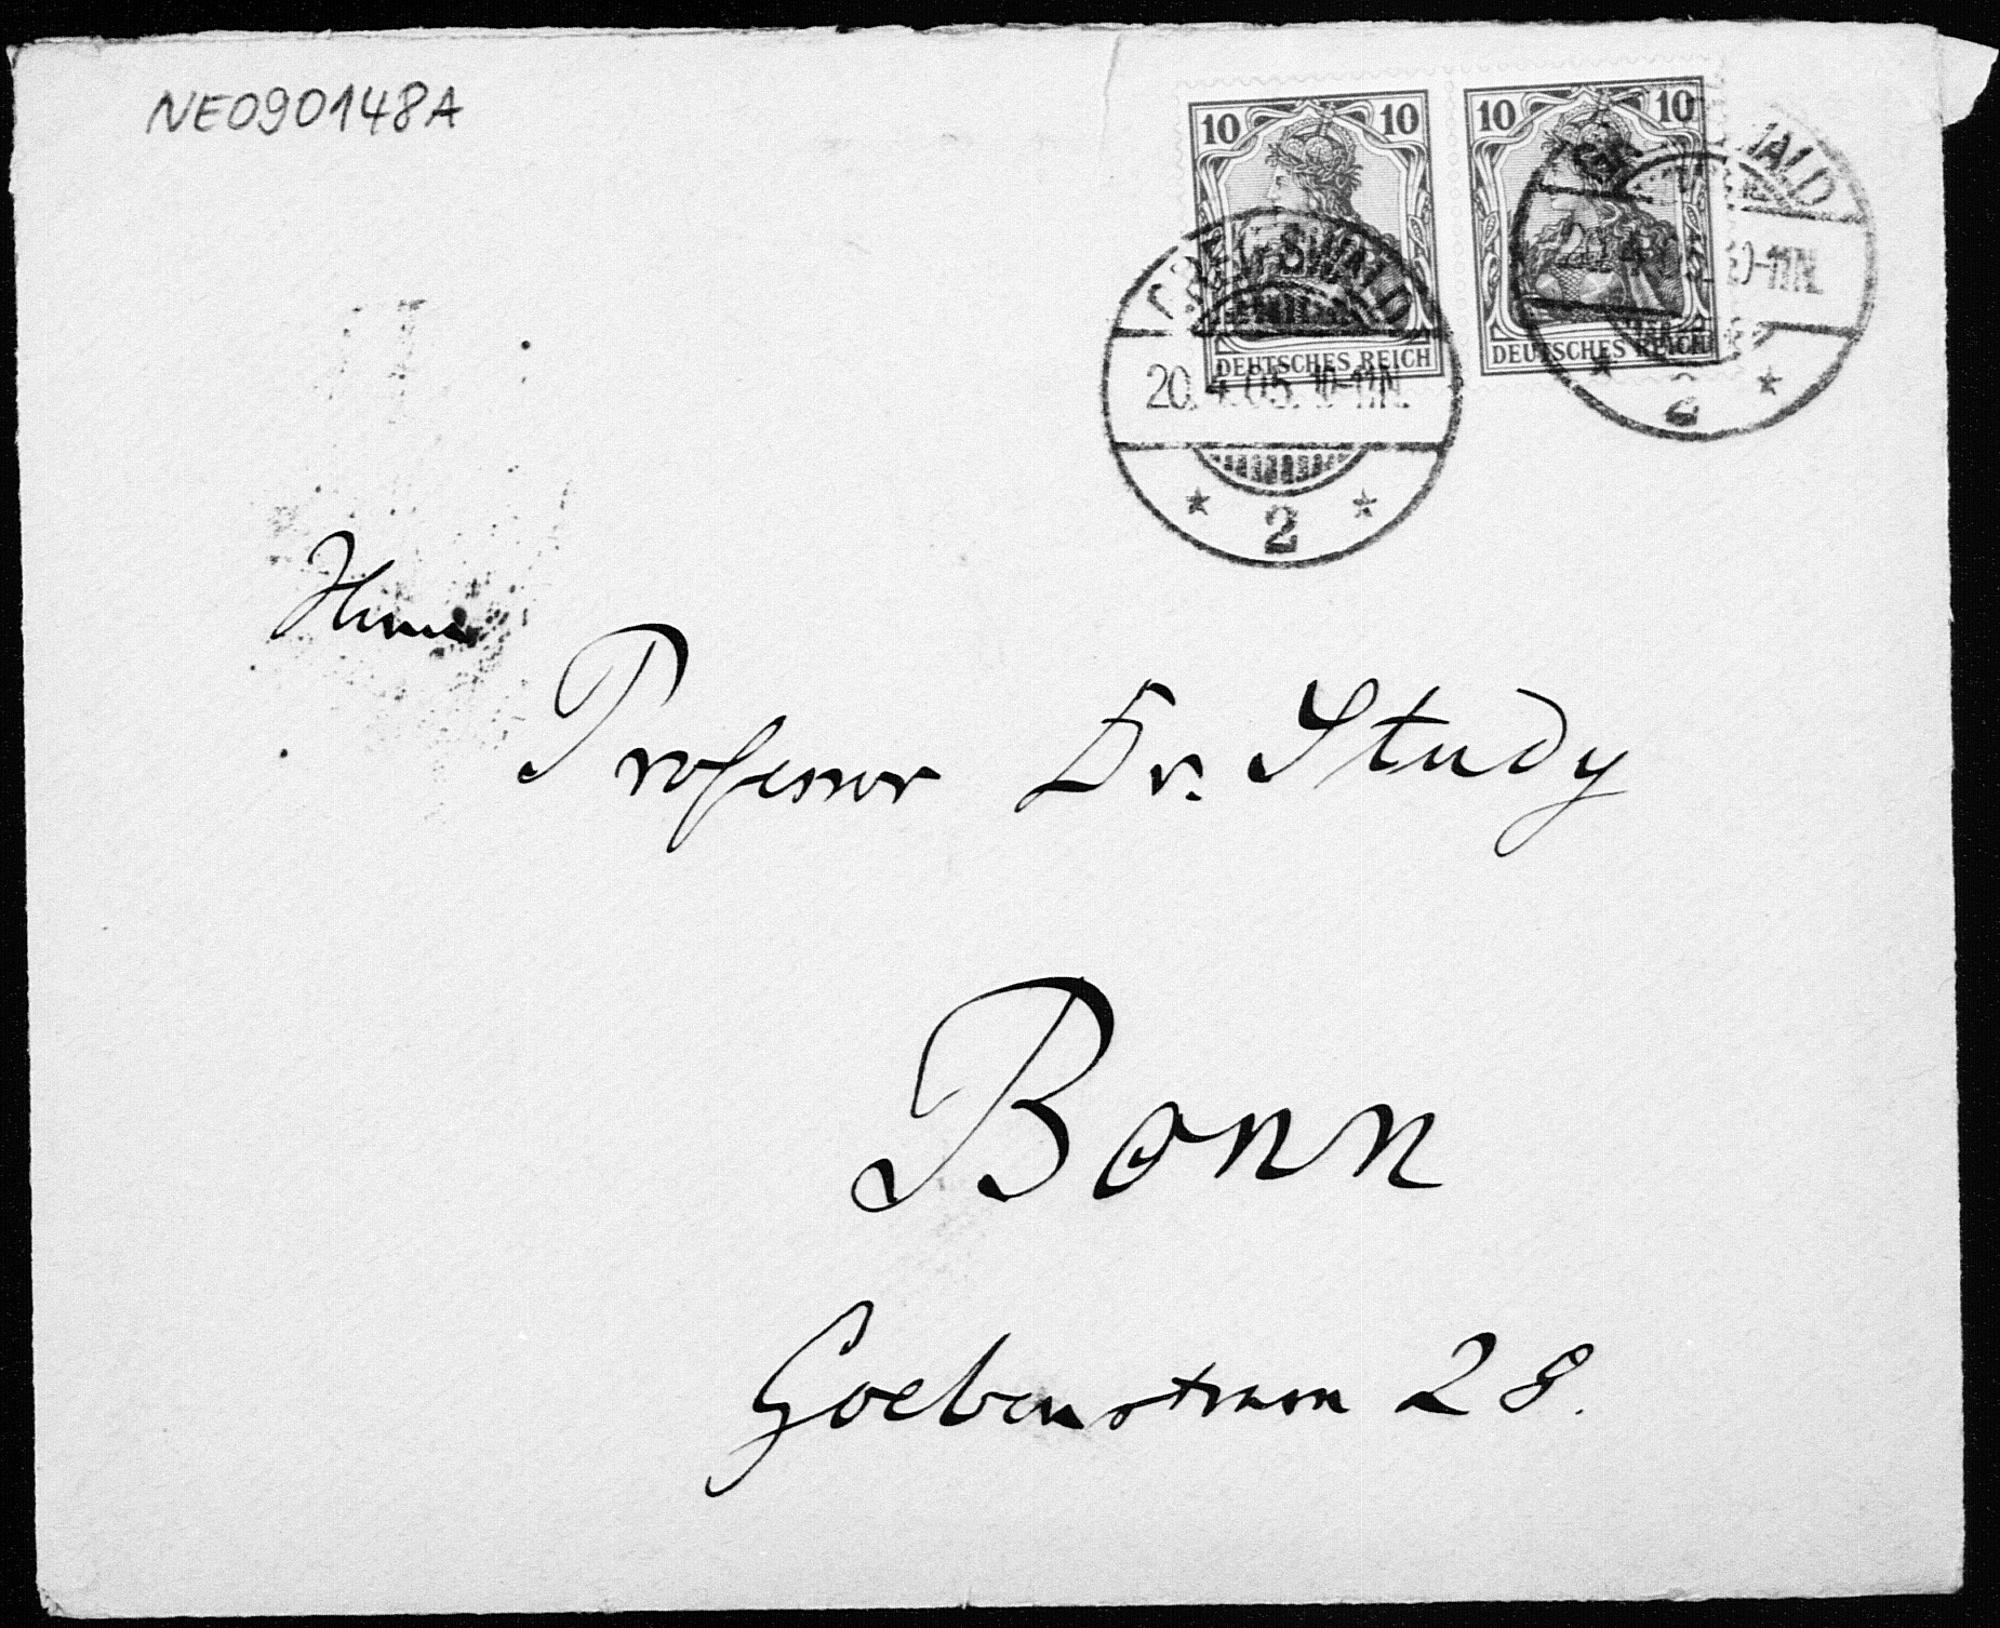 NE090148A
10 10 10 10
DEUTSCHES REICH DEUTSCHES REICH
GREIFSWALD
20.4.05. 10-11N.
* 2 *
Herrn
Professor Dr. Study
Bonn
Goebenstrasse 28.